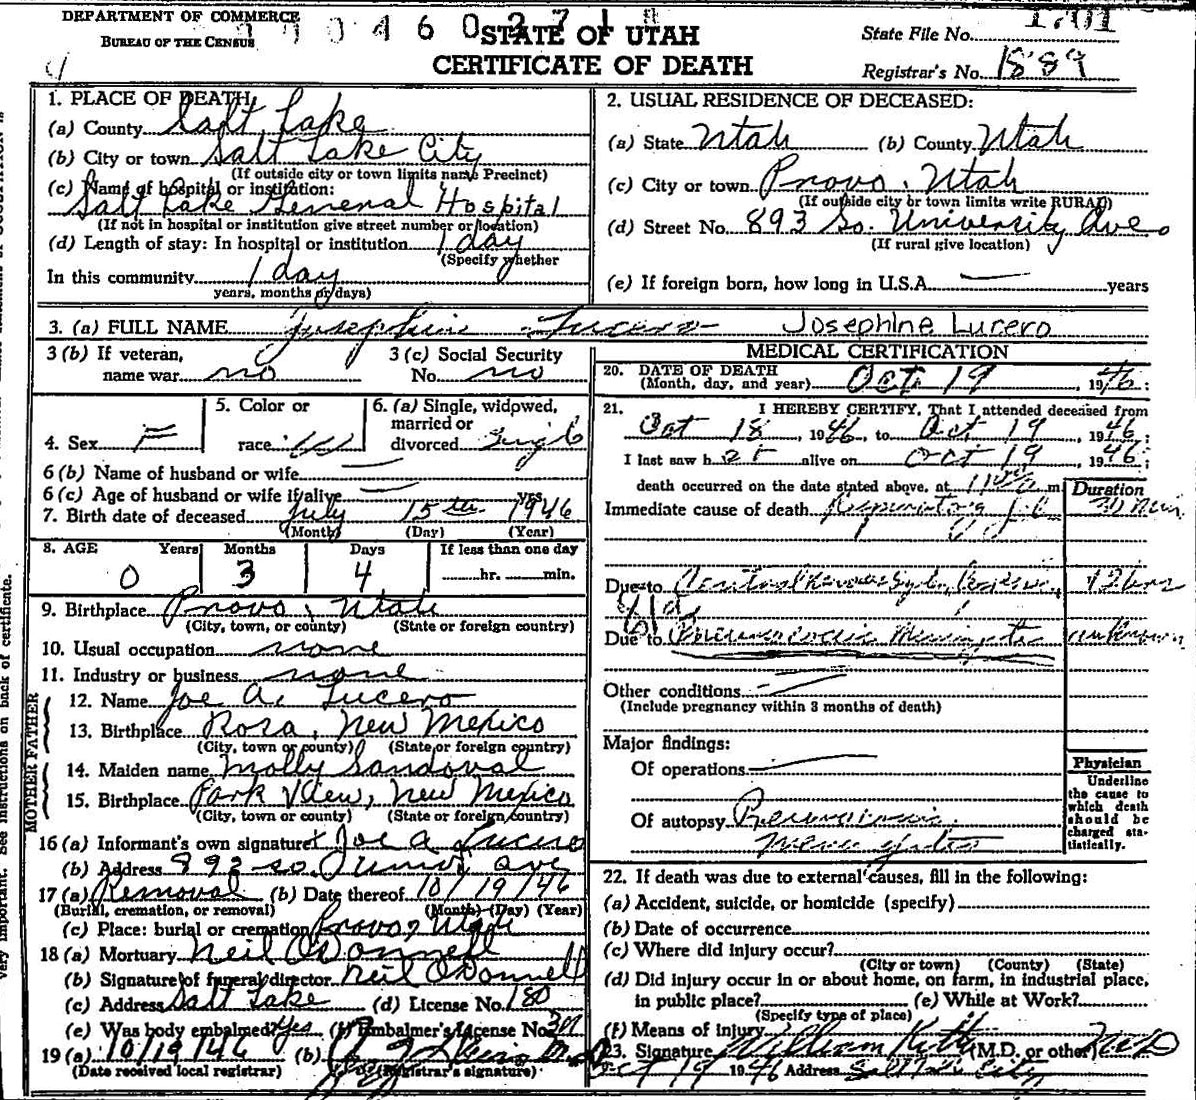 DEPARTMENT OF COMMERCE
BUREAU OF THE CENSUS
STATE OF UTAH
CERTIFICATE OF DEATH
State File No. 1701
Registrar's No. 1889
1. PLACE OF DEATH
(a) County Salt Lake
(b) City or town Salt Lake City
(If outside city or town limits name Precinct)
(c) Name of hospital or institution:
Salt Lake General Hospital
(If not in hospital or institution give street number or location)
(d) Length of stay: In hospital or institution 1 day
(Specify whether
In this community 1 day
years, months or days)
2. USUAL RESIDENCE OF DECEASED:
(a) State Utah (b) County Utah
(c) City or town Provo, Utah
(If outside city or town limits write RURAL)
(d) Street No. 893 So. University Ave.
(If rural give location)
(e) If foreign born, how long in U.S.A. — years
3. (a) FULL NAME Josephine Lucero Josephine Lucero
3 (b) If veteran, name war no
3 (c) Social Security No. no
4. Sex F
5. Color or race W
6. (a) Single, widowed, married or divorced Single
6 (b) Name of husband or wife —
6 (c) Age of husband or wife if alive — yrs.
7. Birth date of deceased July 15th 1946
(Month) (Day) (Year)
8. AGE Years Months Days If less than one day
0 3 4 hr. min.
9. Birthplace Provo, Utah
(City, town, or county) (State or foreign country)
10. Usual occupation none
11. Industry or business none
FATHER
12. Name Joe A. Lucero
13. Birthplace Rosa, New Mexico
(City, town or county) (State or foreign country)
MOTHER
14. Maiden name Molly Sandoval
15. Birthplace Park View, New Mexico
(City, town or county) (State or foreign country)
16 (a) Informant's own signature x Joe A Lucero
(b) Address 893 so. Univ. ave
17 (a) Removal (b) Date thereof 10/19/46
(Burial, cremation, or removal) (Month) (Day) (Year)
(c) Place: burial or cremation Provo, Utah
18 (a) Mortuary Neil O'Donnell
(b) Signature of funeral director Neil O'Donnell
(c) Address Salt Lake (d) License No. 180
(e) Was body embalmed? Yes (f) Embalmer's License No.
19 (a) 10/19/46 (b)
(Date received local registrar) (Registrar's signature)
MEDICAL CERTIFICATION
20. DATE OF DEATH
(Month, day, and year) Oct 19, 1946;
21. I HEREBY CERTIFY, That I attended deceased from
Oct 18, 1946, to Oct 19, 1946;
I last saw her alive on Oct 19, 1946;
death occurred on the date stated above, at m.
Duration
Immediate cause of death Respiratory
Due to
Due to Pneumococcic Meningitis unknown
Other conditions —
(Include pregnancy within 3 months of death)
Major findings:
Of operations —
Of autopsy Pneumococcic
Meningitis
Physician
Underline the cause to which death should be charged statistically.
22. If death was due to external causes, fill in the following:
(a) Accident, suicide, or homicide (specify)
(b) Date of occurrence
(c) Where did injury occur?
(City or town) (County) (State)
(d) Did injury occur in or about home, on farm, in industrial place, in public place? (e) While at Work?
(Specify type of place)
(f) Means of Injury
23. Signature William (M.D. or other) M.D.
Oct 19 1946 Address Salt Lake City
very important. See instructions on back of certificate.